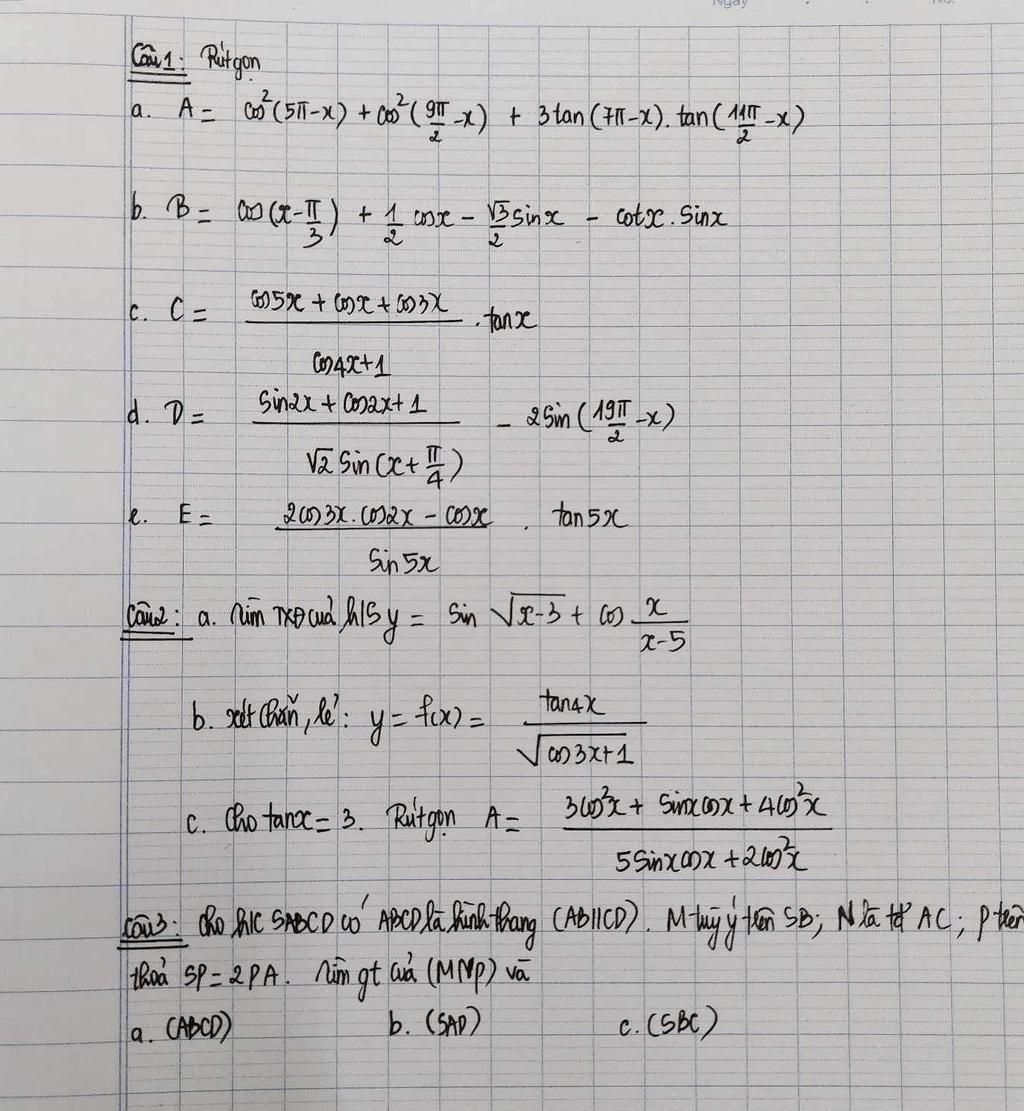 Ngày
No.
Câu 1: Rút gọn
a. A = cos²(5π-x) + cos²(9π/2 -x) + 3tan(7π-x).tan(11π/2 -x)
b. B = cos(x-π/3) + 1/2 cosx - √3/2 sinx - cotx.sinx
c. C = (cos5x + cosx + cos3x)/(cos4x+1) .tanx
d. D = (sin2x + cos2x+1)/(√2 sin(x+π/4)) - 2sin(19π/2 -x)
e. E = (2cos3x.cos2x - cosx)/(sin5x) . tan5x
Câu 2: a. Tìm TXĐ của h/s y = sin √(x-3) + cos x/(x-5)
b. xét chẵn, lẻ: y = f(x) = tan4x/√(cos3x+1)
c. Cho tanx = 3. Rút gọn A = (3cos²x + sinxcosx + 4cos²x)/(5sinxcosx + 2cos²x)
Câu 3: Cho h/c SABCD có ABCD là hình thang (AB//CD). M tuỳ ý trên SB; N là tđ AC; P trên
thoả SP = 2PA. Tìm gt của (MNP) và
a. (ABCD) b. (SAD) c. (SBC)